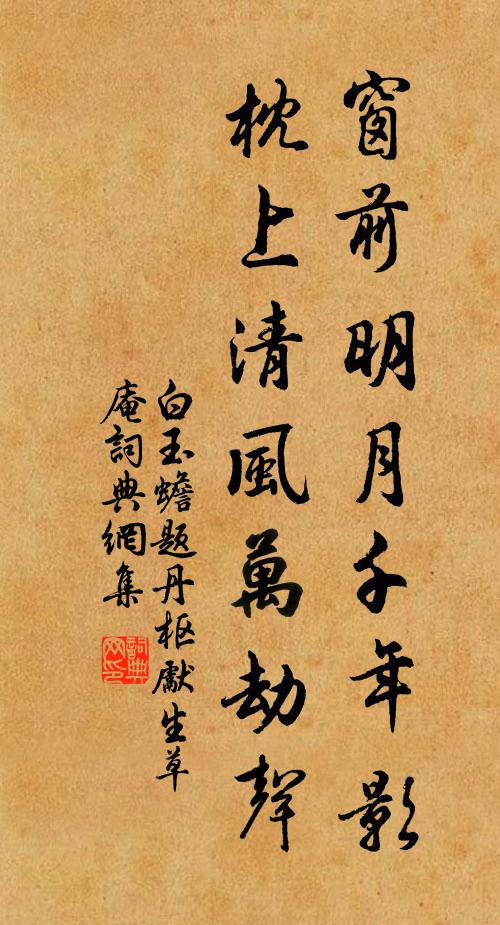 窗前明月千年影
枕上清風萬劫聲
白玉蟾題丹枢獻生草
庵詞典網集
詞典
网印